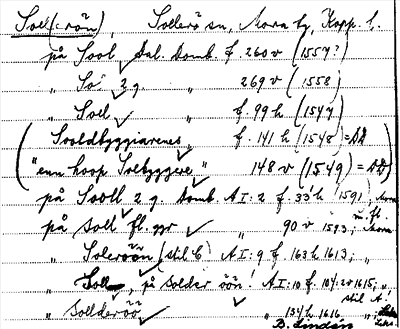 Soll(:rön), Sollerö sn, Mora tg, Kopp. l.
på Sool Dal. Domb. f. 260 v (1557?)
" So" 2 g. " 269 v (1558)
" Soll " f. 99 h (1547)
( Sooldbyggiarenes, f. 141 h (1548) = DD )
( "enn hoop Solbyggere" 148 v (1549) = DD )
på Sooll 2 g. Domb. A I: 2 f. 33 h 1591,
på Soll fl. ggr " 90 v 1593;
" Soleröön (stil C) A I: 9 f. 163 h 1613; "
" Soll , på solder öön! A I: 10 f. 104: 2 v 1615, "
stil A!
" Sollderöö " 134 h 1616
D. Lindén